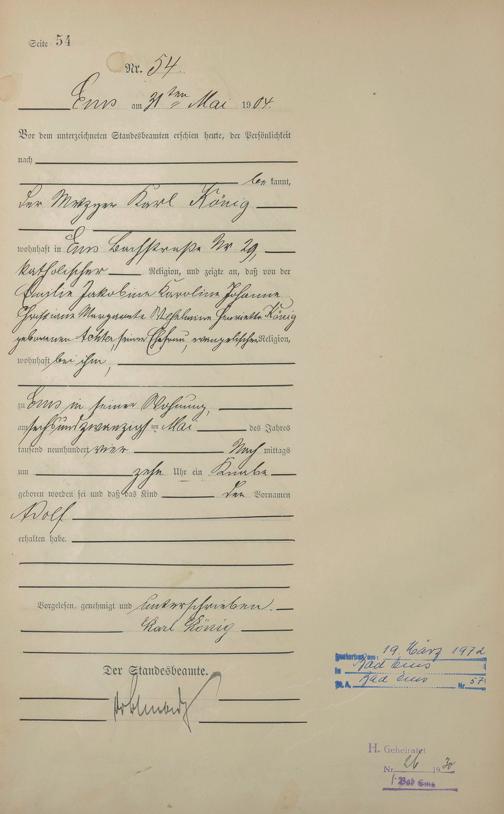 Seite 54
Nr. 54.
Ems am 31ten Mai 1904.
Vor dem unterzeichneten Standesbeamten erschien heute, der Persönlichkeit
nach
be kannt,
der Metzger Karl König
wohnhaft in Ems Bachstraße Nr 29,
katholischer Religion, und zeigte an, daß von der
Emilie Jakobine Karoline Johanne
Christiane Margarete Wilhelmine Henriette König
geborenen seiner Ehefrau, evangelischer Religion,
wohnhaft bei ihm,
zu Ems in seiner Wohnung,
am sechsundzwanzigsten Mai des Jahres
tausend neunhundert vier Nach mittags
um zehn Uhr ein Knabe
geboren worden sei und daß das Kind den Vornamen
Adolf
erhalten habe.
Vorgelesen, genehmigt und unterschrieben.
Karl König
Der Standesbeamte.
19. März 1972
in Bad Ems
St. A. Bad Ems Nr. 57
H. Geheiratet
Nr. 26 1930
Bad Ems